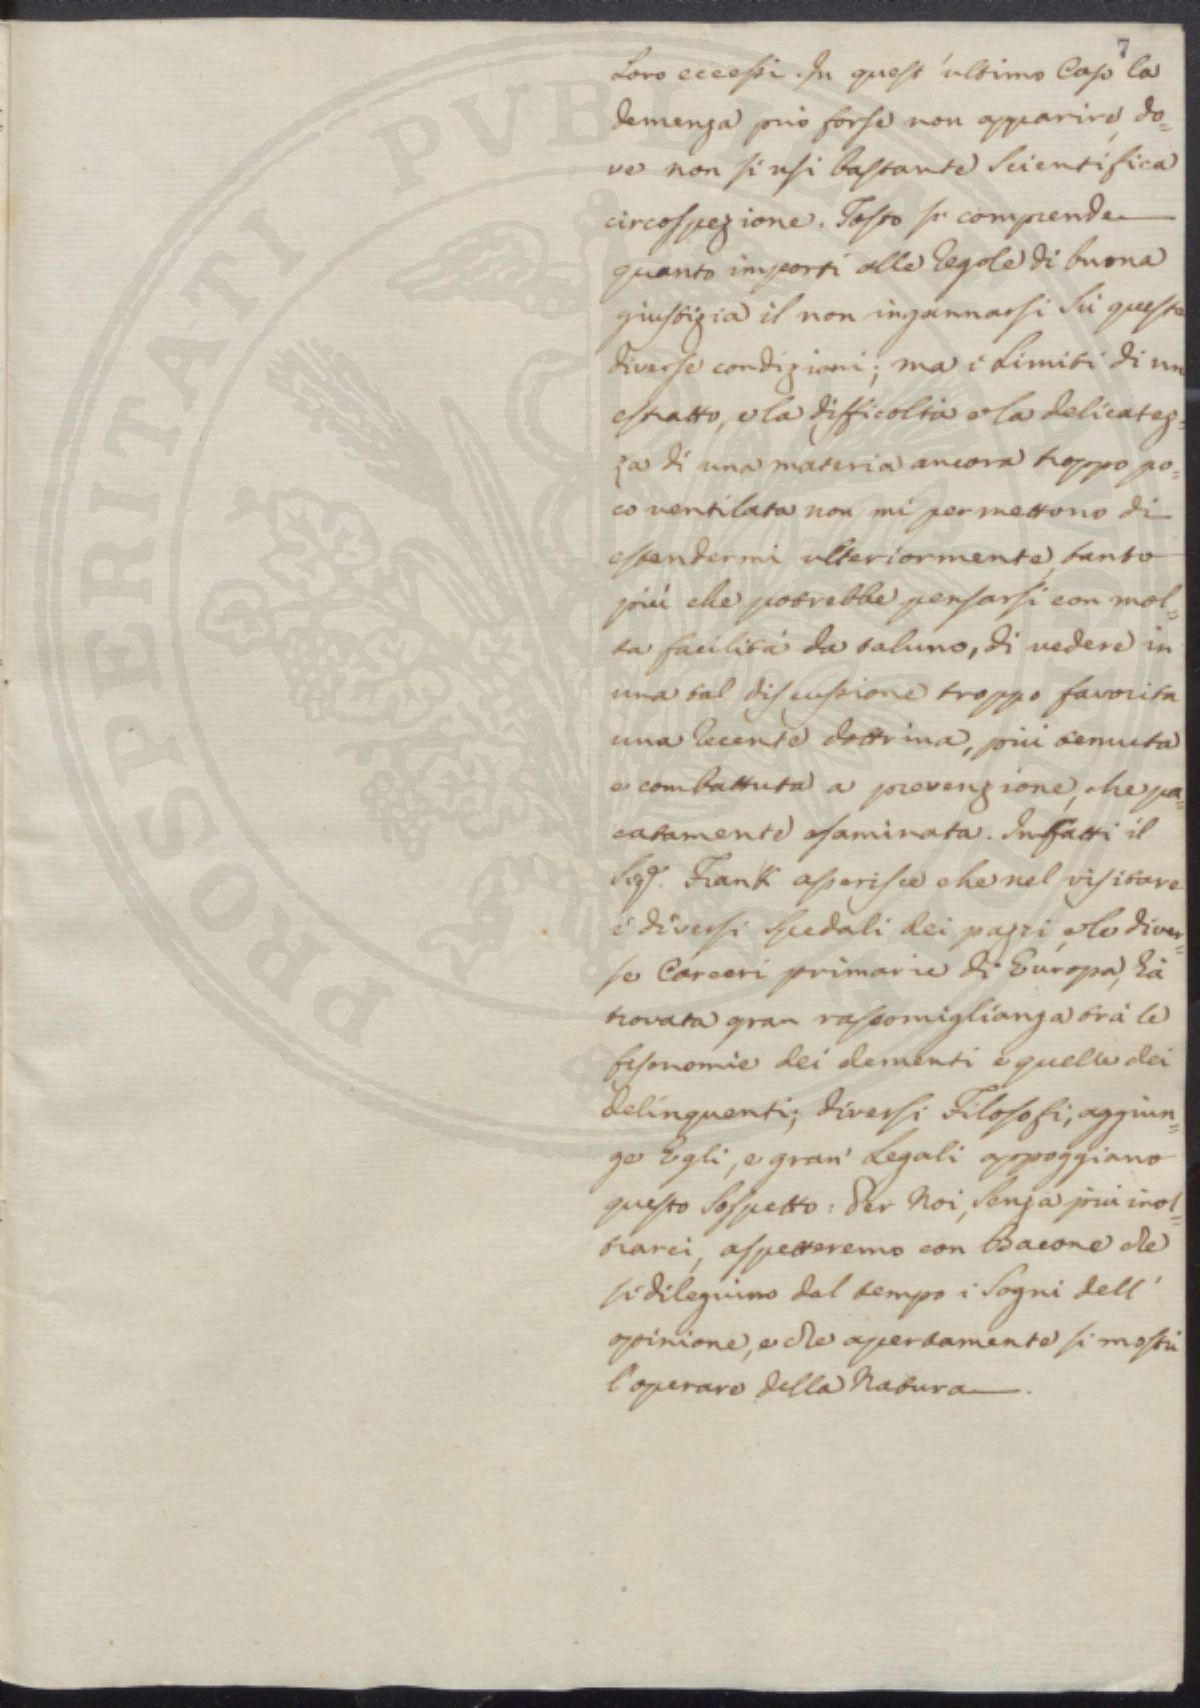 7
Loro eccessi. In quest'ultimo Caso la
demenza può forse non apparire, do=
ve non si usi bastante Scientifica
circospezione. Tosto si comprende
quanto importi alle regole di buona
giustizia il non ingannarsi Sù queste
diverse condizioni; ma i Limiti di un
estratto, e la difficoltà e la delicatez=
za di una materia ancora troppo po=
co ventilata non mi permettono di
estendermi ulteriormente, tanto
più che potrebbe pensarsi con mol=
ta facilità da taluno, di vedere in
una tal discussione troppo favorita
una recente dottrina, più temuta
e combattuta a prevenzione, che pa=
catamente esaminata. Infatti il
Sig.r Frank asserisce che nel visitare
i diversi Spedali dei pazzi, e le diver=
se Carceri primarie di Europa, hà
trovata gran rassomiglianza trà le
fisonomie dei dementi e quelle dei
delinquenti; diversi Filosofi, aggiun=
ge Egli, e gran' Legali appoggiano
questo Sospetto: Per Noi, Senza più inol=
trarci, aspetteremo con Bacone che
si dileguino dal tempo i Sogni dell'
opinione, e che apertamente si mostri
l'operare della Natura.
PROSPERITATI PVBLICAE